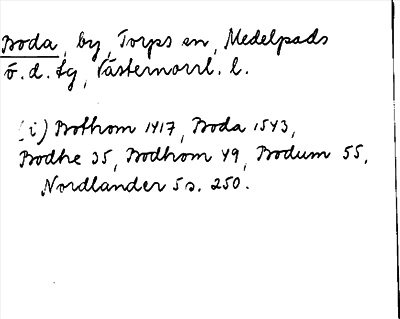 Boda, by, Torps sn, Medelpads
ö. d. tg, Västernorrl. l.
(i) Bothom 1417, Boda 1543,
Bodhe 35, Bodhom 49, Bodum 55,
Nordlander 5 s. 250.